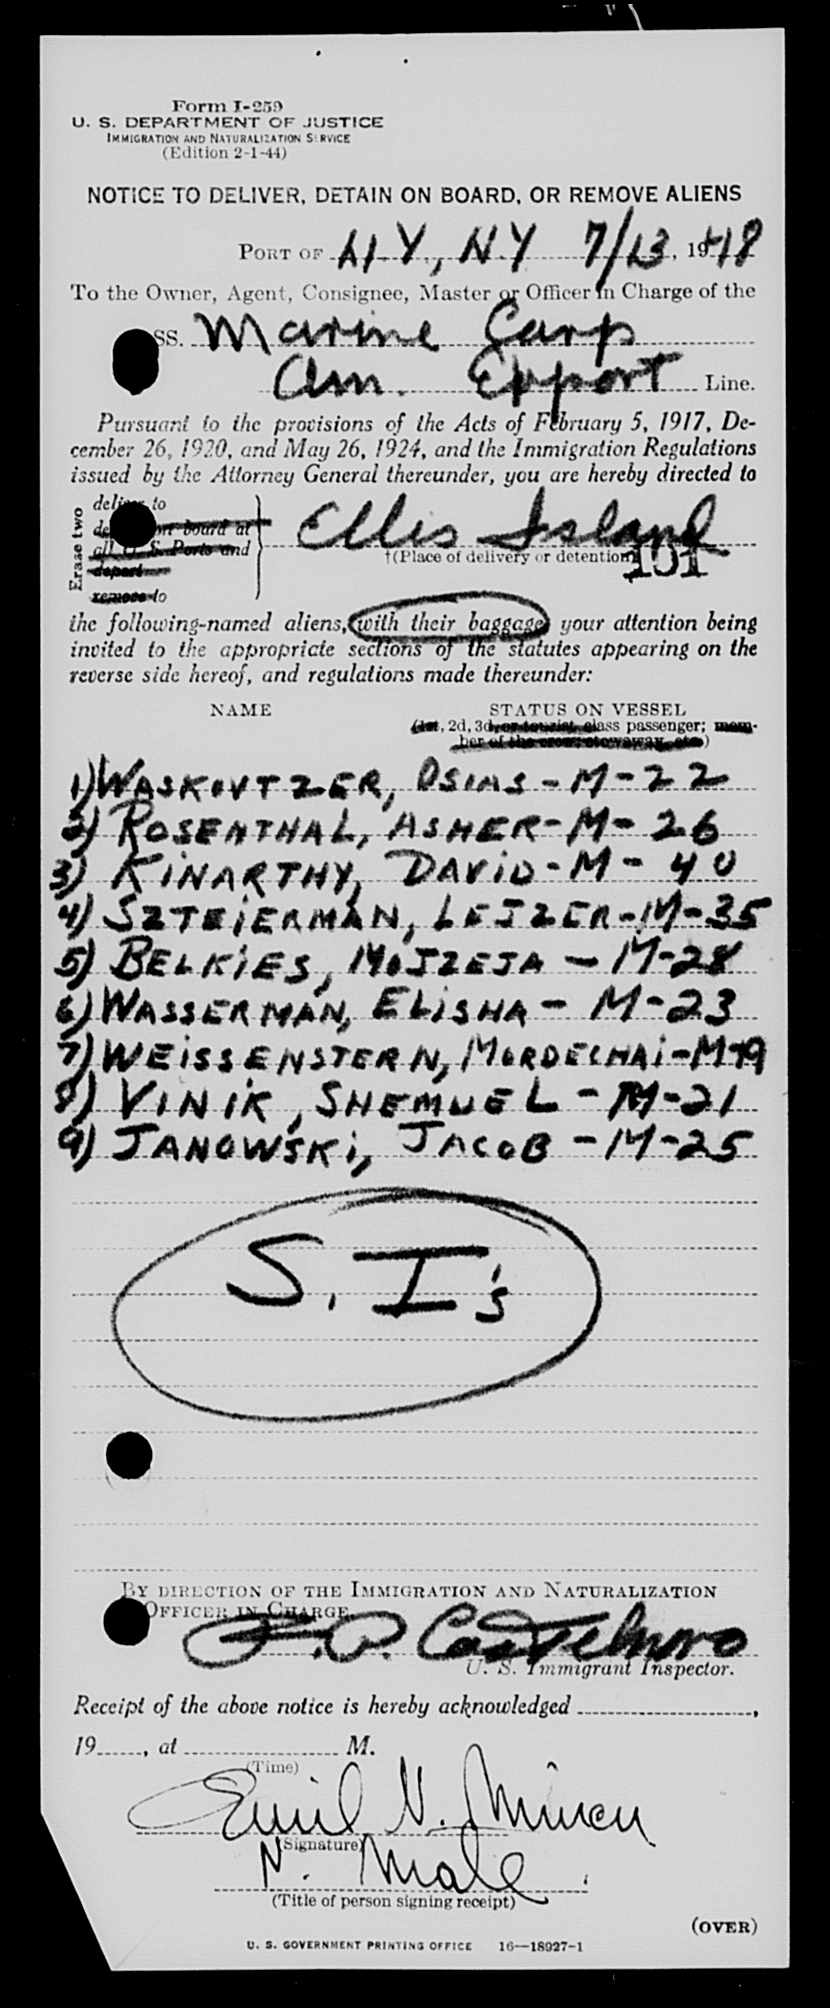 Form I-259
U. S. DEPARTMENT OF JUSTICE
IMMIGRATION AND NATURALIZATION SERVICE
(Edition 2-1-44)
NOTICE TO DELIVER, DETAIN ON BOARD, OR REMOVE ALIENS
PORT OF N.Y, N.Y 7/13, 1948
To the Owner, Agent, Consignee, Master or Officer in Charge of the
SS. Marine Carp
Am. Export Line.
Pursuant to the provisions of the Acts of February 5, 1917, De-
cember 26, 1920, and May 26, 1924, and the Immigration Regulations
issued by the Attorney General thereunder, you are hereby directed to
Erase two
deliver to
on board at
all U. S. Ports and
depart
remove to
Ellis Island
†(Place of delivery or detention)
101
the following-named aliens, with their baggage, your attention being
invited to the appropriate sections of the statutes appearing on the
reverse side hereof, and regulations made thereunder:
NAME STATUS ON VESSEL
(1st, 2d, 3d, or tourist class passenger; mem-
ber of the crew, stowaway, etc.)
1) WASKOVTZER, OSIAS - M - 22
2) ROSENTHAL, ASHER - M - 26
3) KINARTHY, DAVID - M - 40
4) SZTEIERMAN, LEJZER - M - 35
5) BELKIES, MOJZEJA - M - 28
6) WASSERMAN, ELISHA - M - 23
7) WEISSENSTERN, MORDECHAI - M - 19
8) VINIK, SHEMUEL - M - 21
9) JANOWSKI, JACOB - M - 25
S. I's
BY DIRECTION OF THE IMMIGRATION AND NATURALIZATION
OFFICER IN CHARGE
U. S. Immigrant Inspector.
Receipt of the above notice is hereby acknowledged
19 , at M.
(Time)
Emil N.
(Signature)
(Title of person signing receipt)
(OVER)
U. S. GOVERNMENT PRINTING OFFICE 16—18927-1